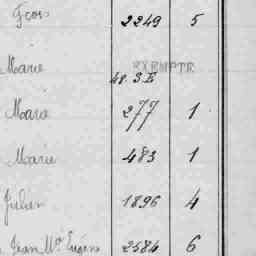 Fcois 2249 5
Marie EXEMPTE
48 S.E
Marie 277 1
Marie 483 1
Julien 1896 4
Jean Mie Eugène 2584 6